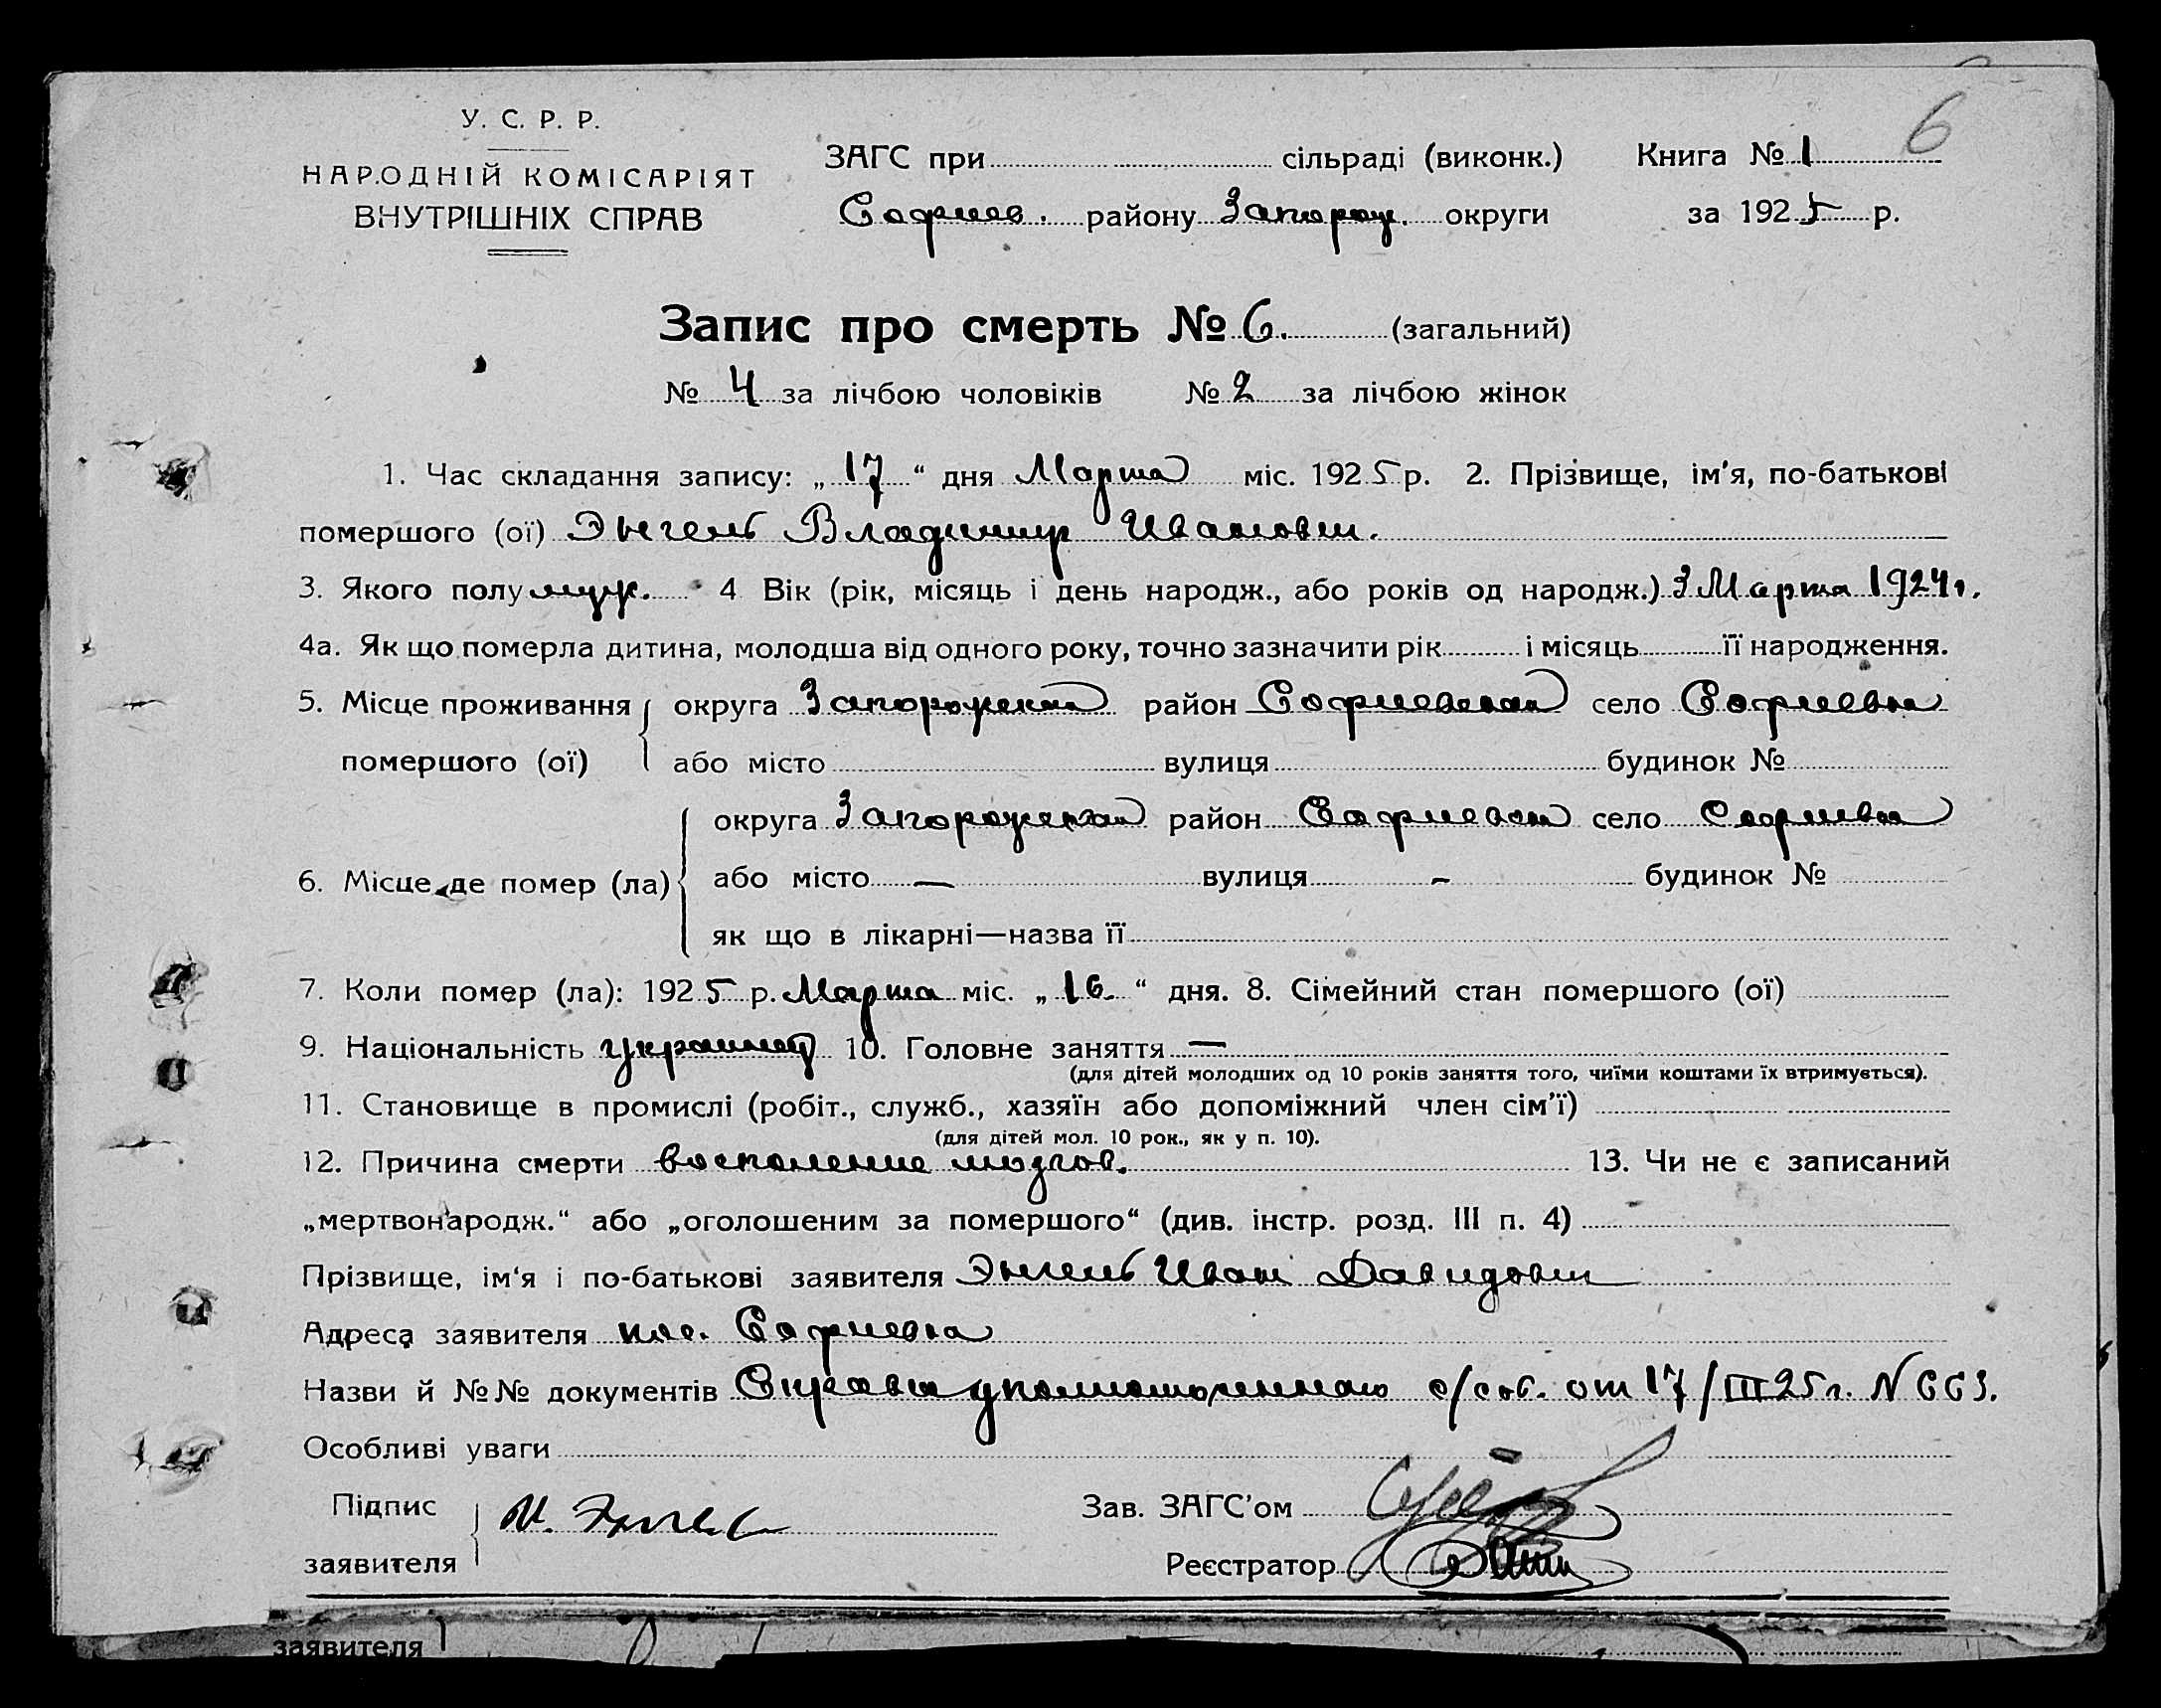 6
У. С. Р. Р.
НАРОДНІЙ КОМІСАРІЯТ
ВНУТРІШНІХ СПРАВ
ЗАГС при сільраді (виконк.)
Софиев. району Запорож. округи
Книга № 1
за 1925 р.
Запис про смерть № 6. (загальний)
№ 4 за лічбою чоловіків № 2 за лічбою жінок
1. Час складання запису: „17“ дня Марта міс. 1925 р. 2. Прізвище, ім'я, по-батькові
помершого (ої) Энгель Владимир Иванович.
3. Якого полу муж. 4 Вік (рік, місяць і день народж., або років од народж.) 3 Марта 1924 г.
4а. Як що померла дитина, молодша від одного року, точно зазначити рік і місяць її народження.
5. Місце проживання округа Запорожская район Софиевская село Софиевка
помершого (ої) або місто вулиця будинок №
округа Запорожская район Софиевск село Софиевка
6. Місце де помер (ла) або місто — вулиця - будинок №
як що в лікарні—назва її
7. Коли помер (ла): 1925 р. Марта міс. „16.“ дня. 8. Сімейний стан помершого (ої)
9. Національність украинец 10. Головне заняття —
(для дітей молодших од 10 років заняття того, чиїми коштами їх втримується).
11. Становище в промислі (робіт., служб., хазяїн або допоміжний член сім'ї)
(для дітей мол. 10 рок., як у п. 10).
12. Причина смерти воспаление мозгов. 13. Чи не є записаний
„мертвонародж.“ або „оголошеним за помершого“ (див. інстр. розд. III п. 4)
Прізвище, ім'я і по-батькові заявителя Энгель Иван Давидович
Адреса заявителя пос. Софиевка
Назви й №№ документів Справка уполномоченного с/сов. от 17/III 25 г. N 663.
Особливі уваги
Підпис
заявителя И. Энгель
Зав. ЗАГС'ом
Реєстратор
заявителя